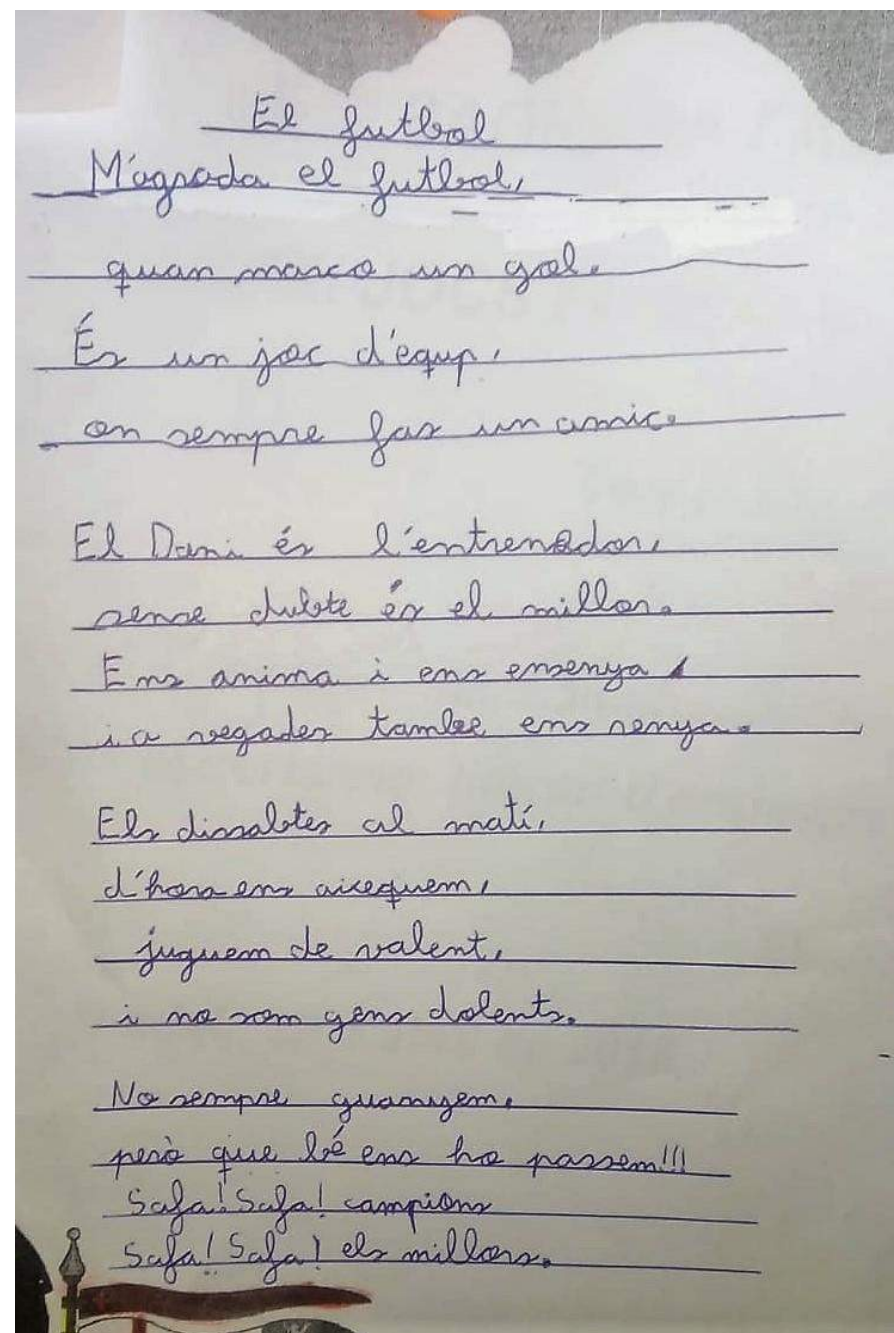 El futbol
M'agrada el futbol,
quan marco un gol.
És un joc d'equp,
on sempre fas un amic.
El Dani és l'entrenador,
sense dubte és el millor.
Ens anima i ens ensenya
i a vegades tambee ens renya.
Els dissabtes al matí,
d'hora ens aixequem,
juguem de valent,
i no som gens dolents.
No sempre guanyem,
però que bé ens ho passem!!!
Safa! Safa! campions
Safa! Safa! els millors.